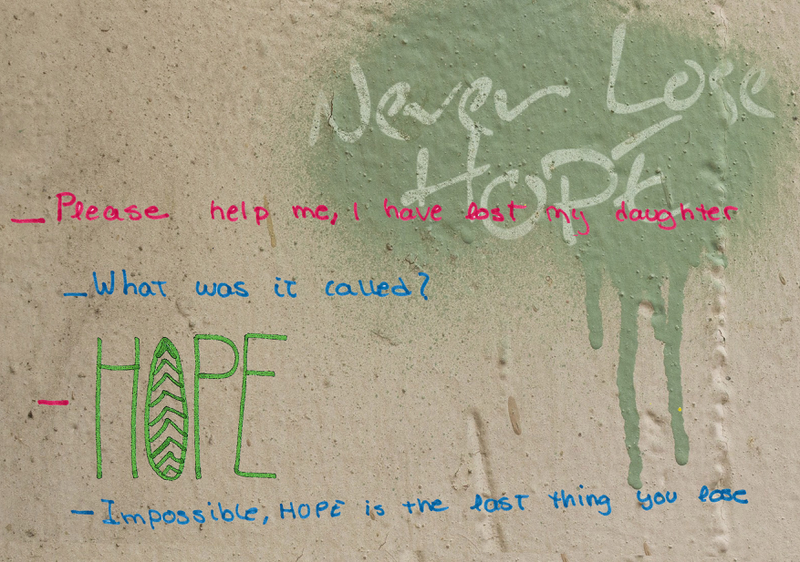 Never Lose
HOPE
_ Please help me, I have lost my daughter
_ What was it called?
- HOPE
- Impossible, HOPE is the last thing you lose